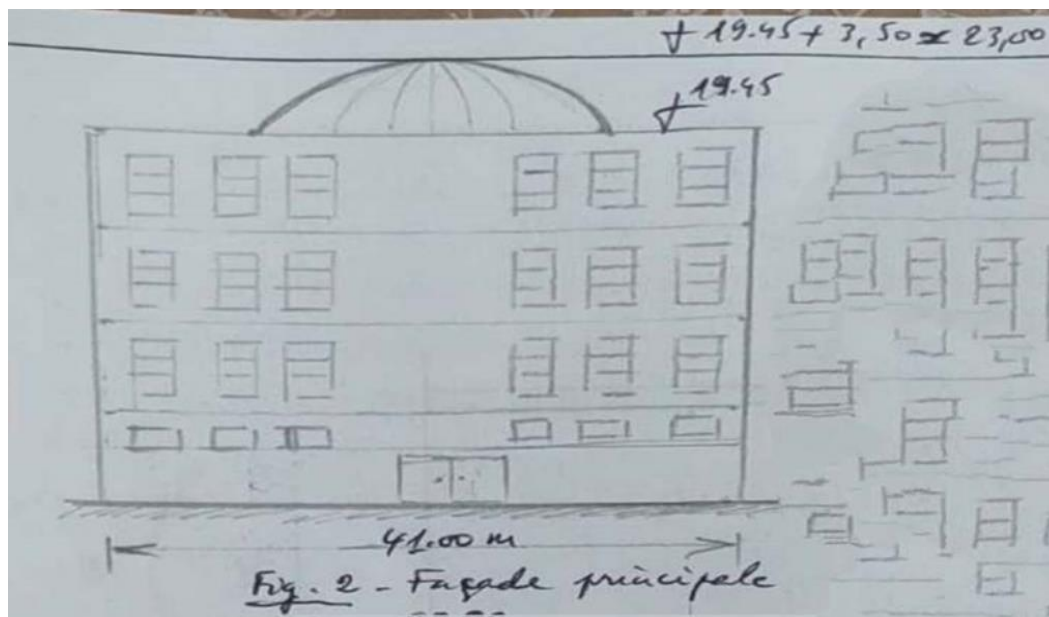 + 19.45 + 3,50 ≃ 23,00
19.45
41.00 m
Fig. 2 - Façade principale